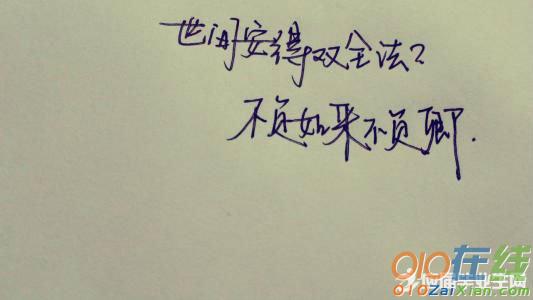 世间安得双全法?
不负如来不负卿.
010在线
010ZaiXian.com